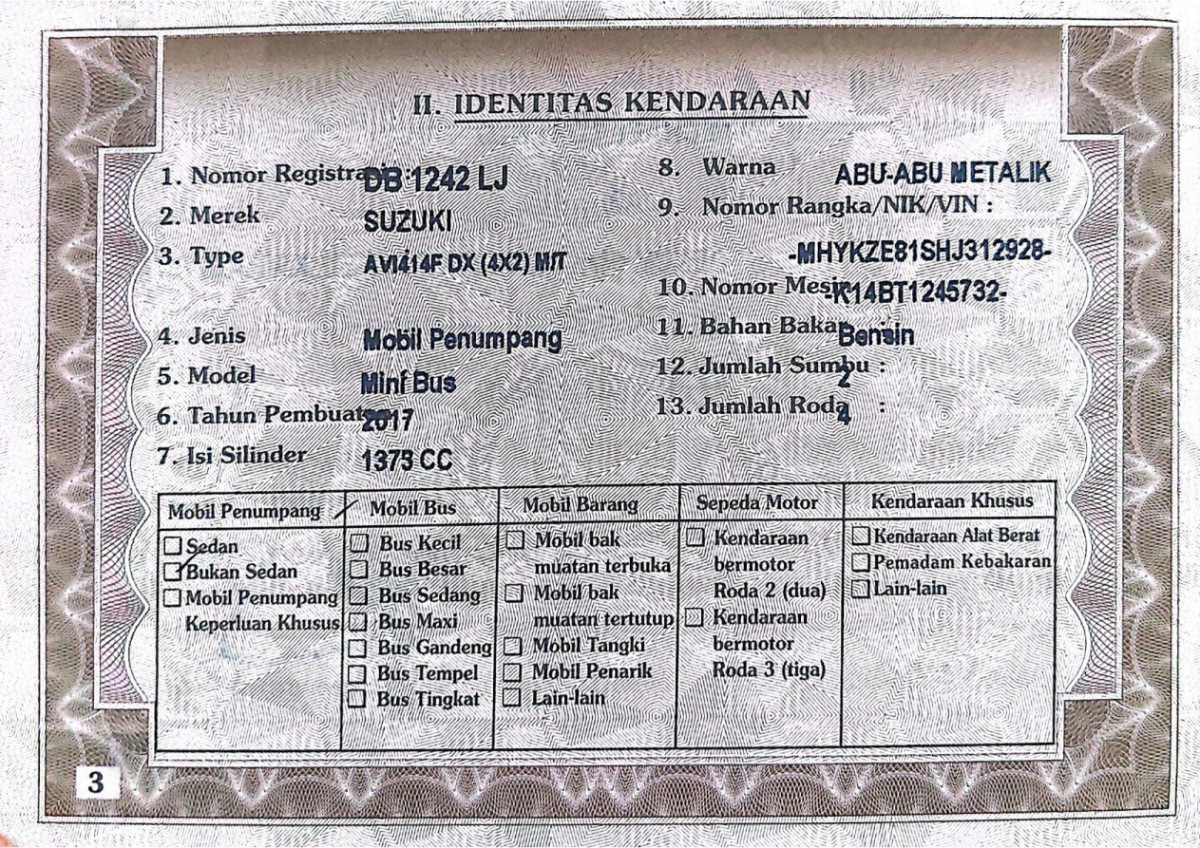 II. IDENTITAS KENDARAAN
1. Nomor Registrasi : DB 1242 LJ
2. Merek SUZUKI
3. Type AVI414F DX (4X2) M/T
4. Jenis Mobil Penumpang
5. Model Mini Bus
6. Tahun Pembuatan 2017
7. Isi Silinder 1373 CC
8. Warna ABU-ABU METALIK
9. Nomor Rangka/NIK/VIN :
-MHYKZE81SHJ312928-
10. Nomor Mesin -K14BT1245732-
11. Bahan Bakar Bensin
12. Jumlah Sumbu : 2
13. Jumlah Roda : 4
Mobil Penumpang
Sedan
Bukan Sedan
Mobil Penumpang
Keperluan Khusus
Mobil Bus
Bus Kecil
Bus Besar
Bus Sedang
Bus Maxi
Bus Gandeng
Bus Tempel
Bus Tingkat
Mobil Barang
Mobil bak
muatan terbuka
Mobil bak
muatan tertutup
Mobil Tangki
Mobil Penarik
Lain-lain
Sepeda Motor
Kendaraan
bermotor
Roda 2 (dua)
Kendaraan
bermotor
Roda 3 (tiga)
Kendaraan Khusus
Kendaraan Alat Berat
Pemadam Kebakaran
Lain-lain
3